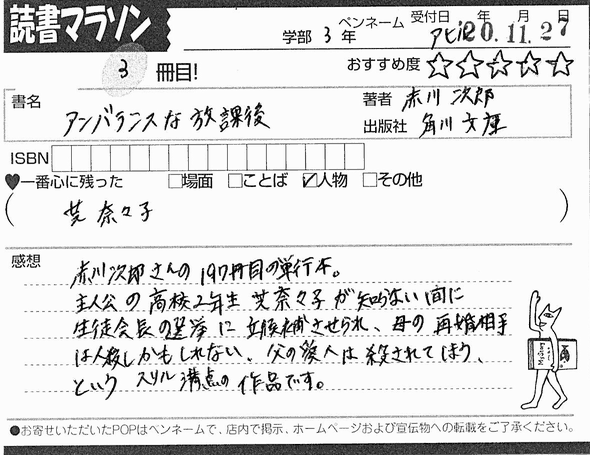 読書マラソン
学部 3年 ペンネーム アヒル 受付日 年 月 日
20.11.27
3 冊目! おすすめ度 ☆☆☆☆☆
書名 アンバランスな放課後
著者 赤川次郎
出版社 角川文庫
ISBN
♥一番心に残った □場面 □ことば ☑人物 □その他
( 芝奈々子 )
感想
赤川次郎さんの197冊目の単行本。
主人公の高校2年生 芝奈々子が知らない間に
生徒会長の選挙に立候補させられ、母の再婚相手
は人殺しかもしれない、父の愛人は殺されてしまう、
という スリル満点の作品です。
●お寄せいただいたPOPはペンネームで、店内で掲示、ホームページおよび宣伝物への転載をご了承ください。